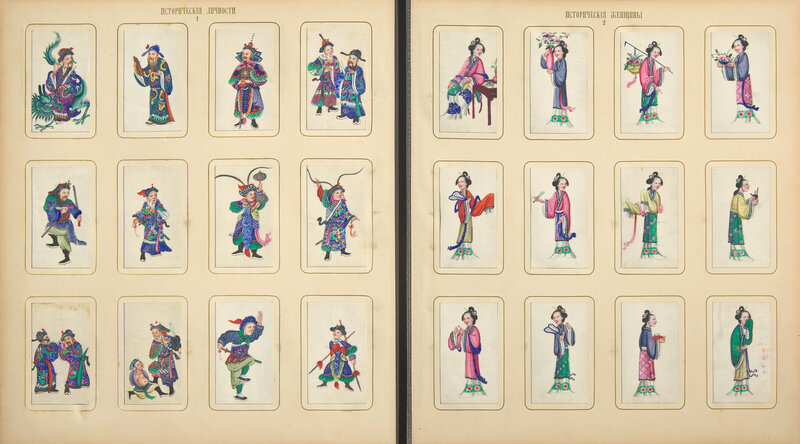 ИСТОРИЧЕСКІЯ ЛИЧНОСТИ
1
ИСТОРИЧЕСКІЯ ЖЕНЩИНЫ
2